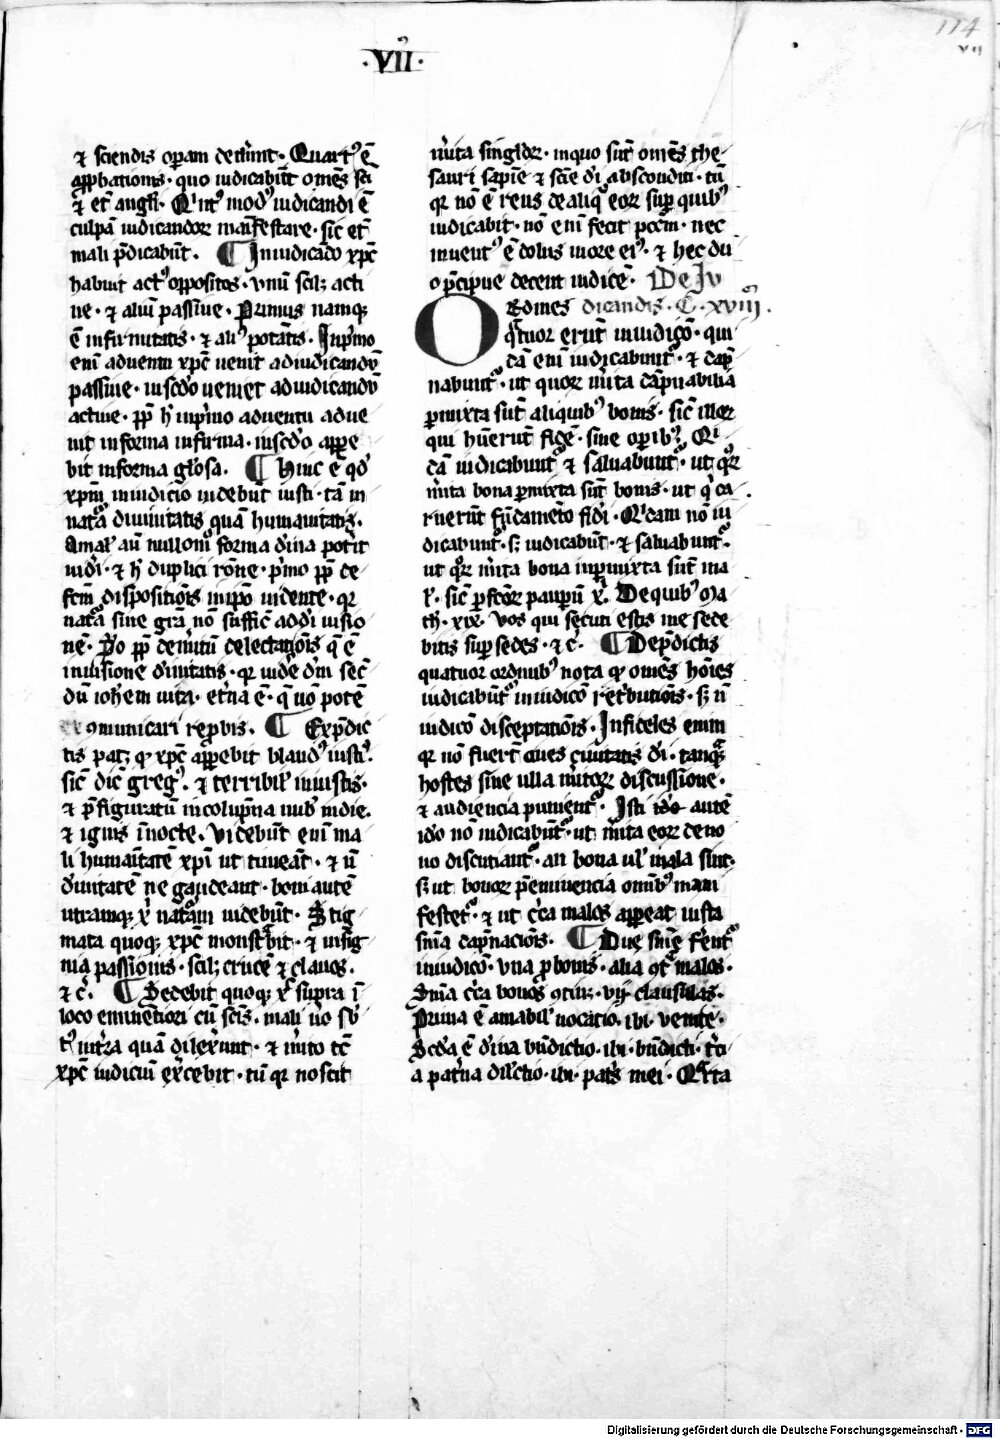 114
VII
·VII·
⁊ sciendis oꝑam dederūt · Quart᷒ ē
app̱bationis · quo iudicabūt om̄es sc̄i
⁊ et̄ angłi · Q'int᷒ mod᷒ iudicandi ē
culpā iudicandoꝝ manifestare · sic et̄
mali p̄dicabūt · ¶ In iudicādo xp̄c
habuit act᷒ oppositos · vnū scilꝫ acti
ue · ⁊ aliū passiue · Primus namqꝫ
ē infirmitatis · ⁊ ali᷒ potātis · In p'mo
eni aduentu xp̄c uenit ad iudicandū
passiue · in scdo ueniet ad iudicandū
actiue · pp̄ h' in p'mo aduentu adue
nit in forma infirma · in scdo appe
bit in forma gl'osa · ¶ Hinc ē qd'
xp̄m in iudicio uidebūt iusti · tā in
natā diuinitatis quā humanitatis ·
Amał aū nullom' forma d'ina pot'it
uid'i · ⁊ h' duplici rōne · p'mo pp̄ de
fc̄m dispositiōis in ip̄o uidente · qꝛ
natā sine grā nō suffic̄ addi uisio
nē · S'o pp̄ demētū delectatiōis q̄ ē
in uisione d'initatis · qꝛ uidē dm̄ sec̄
dū ioh'em uita · et'na ē · q̄ uō potē
9municari rep̱bis · ¶ Ex p̄dic
tis patꝫ qꝫ xp̄c appebit bland᷒ iust᷒ ·
sic̄ dic̄ greg᷒ · ⁊ terribil' iniustis ·
⁊ p̄figuratū in colūpna nub' in die ·
⁊ ignis ī nocte · Videbūt enī ma
li humaītatē xpī ut timeāt · ⁊ ñ
d'initatē ne gaudeant · boni autē
utramqꝫ x' natām uidebūt · Stig
mata quoqꝫ xp̄c monst'bit · ⁊ insig
nia passionis · scilꝫ crucē ⁊ clauos ·
⁊ c̄ · ¶ Decebit quoqꝫ x' supra ī
loco eminētiori cū scīs · mali uō sb'
t᷒ int'ra quā dilex'unt · ⁊ m'ito tē
xp̄c iudiciū ex'cebit · tū qꝛ nō scit
m'ita singłoꝝ · in quo sūt om̄es the
sauri sapīe ⁊ scīe d'i absconditi · tū
qꝛ nō ē reus de aliq' eoꝝ suꝑ quib᷒
iudicabit · nō enī fecit pcc̄m · nec
inuent᷒ ē dolus in ore ei᷒ · ⁊ hec du
o p̄cipue decent iudicē · De Iu
Rdines dicandis · C · xviij ·
q̄tuor erūt in iudiço · qui
dā enī iudicabunt᷒ · ⁊ dāp̄
nabunt᷒ · ut quoꝝ m'ita dāpnabilia
ꝑmixta sūt aliquib᷒ bonis · sic̄ illoꝝ
qui hūerūt fidē · sine oꝑib᷒ · Qi
dā iudicabunt᷒ ⁊ saluabunt᷒ · ut qꝛ
m'ita bona ꝑmixta sūt bonis · ut q' ca
ruerūt fūdamēto fid'i · Q'dam nō iu
dicabunt᷒ · sꝫ iudicabūt · ⁊ saluabunt᷒ ·
ut qꝛ m'ita bona inꝑmixta sūt ma
l' · sic̄ ꝑfctoꝝ pauꝑū x' · De quib᷒ Ma
th · xix · Vos qui secuti estis me sede
bitis suꝑ sedes · ⁊ c̄ · ¶ De p̄dictis
quatuor ordinib᷒ nota qꝫ om̄es ho'ies
iudicabūt᷒ in iudicō ret'butiōis · sꝫ ñ
iudicō disceptatiōis · Infideles enim
qꝛ nō fuerūt ciues ciuitatis d'i · tanqꝫ
hostes sine ulla m'itoꝝ discussione ·
⁊ audiencia punient᷒ · Isti ido autē
ido nō iudicabūt᷒ · ut m'ita eoꝝ de no
uo discutiant᷒ · an bona uł mala sint ·
sꝫ ut bonoꝝ p̄eminencia omīb᷒ mani
festet᷒ · ⁊ ut c̄ca malos appeat iusta
snīa dāpnaciōis · ¶ Due snīe f'ent᷒
in iudicō · vna ꝓ bonis · alia 9t' malos ·
Snīa c̄ca bonos 9tinꝫ · vij · clausulas ·
Prima ē amabil' uocatio · ibi · venite ·
Scd'a ē d'ina bn̄dictio · ibi · bn̄dicti · t'ci
a pat'na dil'ctio · ibi · pat's mei · Q'rta
Digitalisierung gefördert durch die Deutsche Forschungsgemeinschaft · DFG